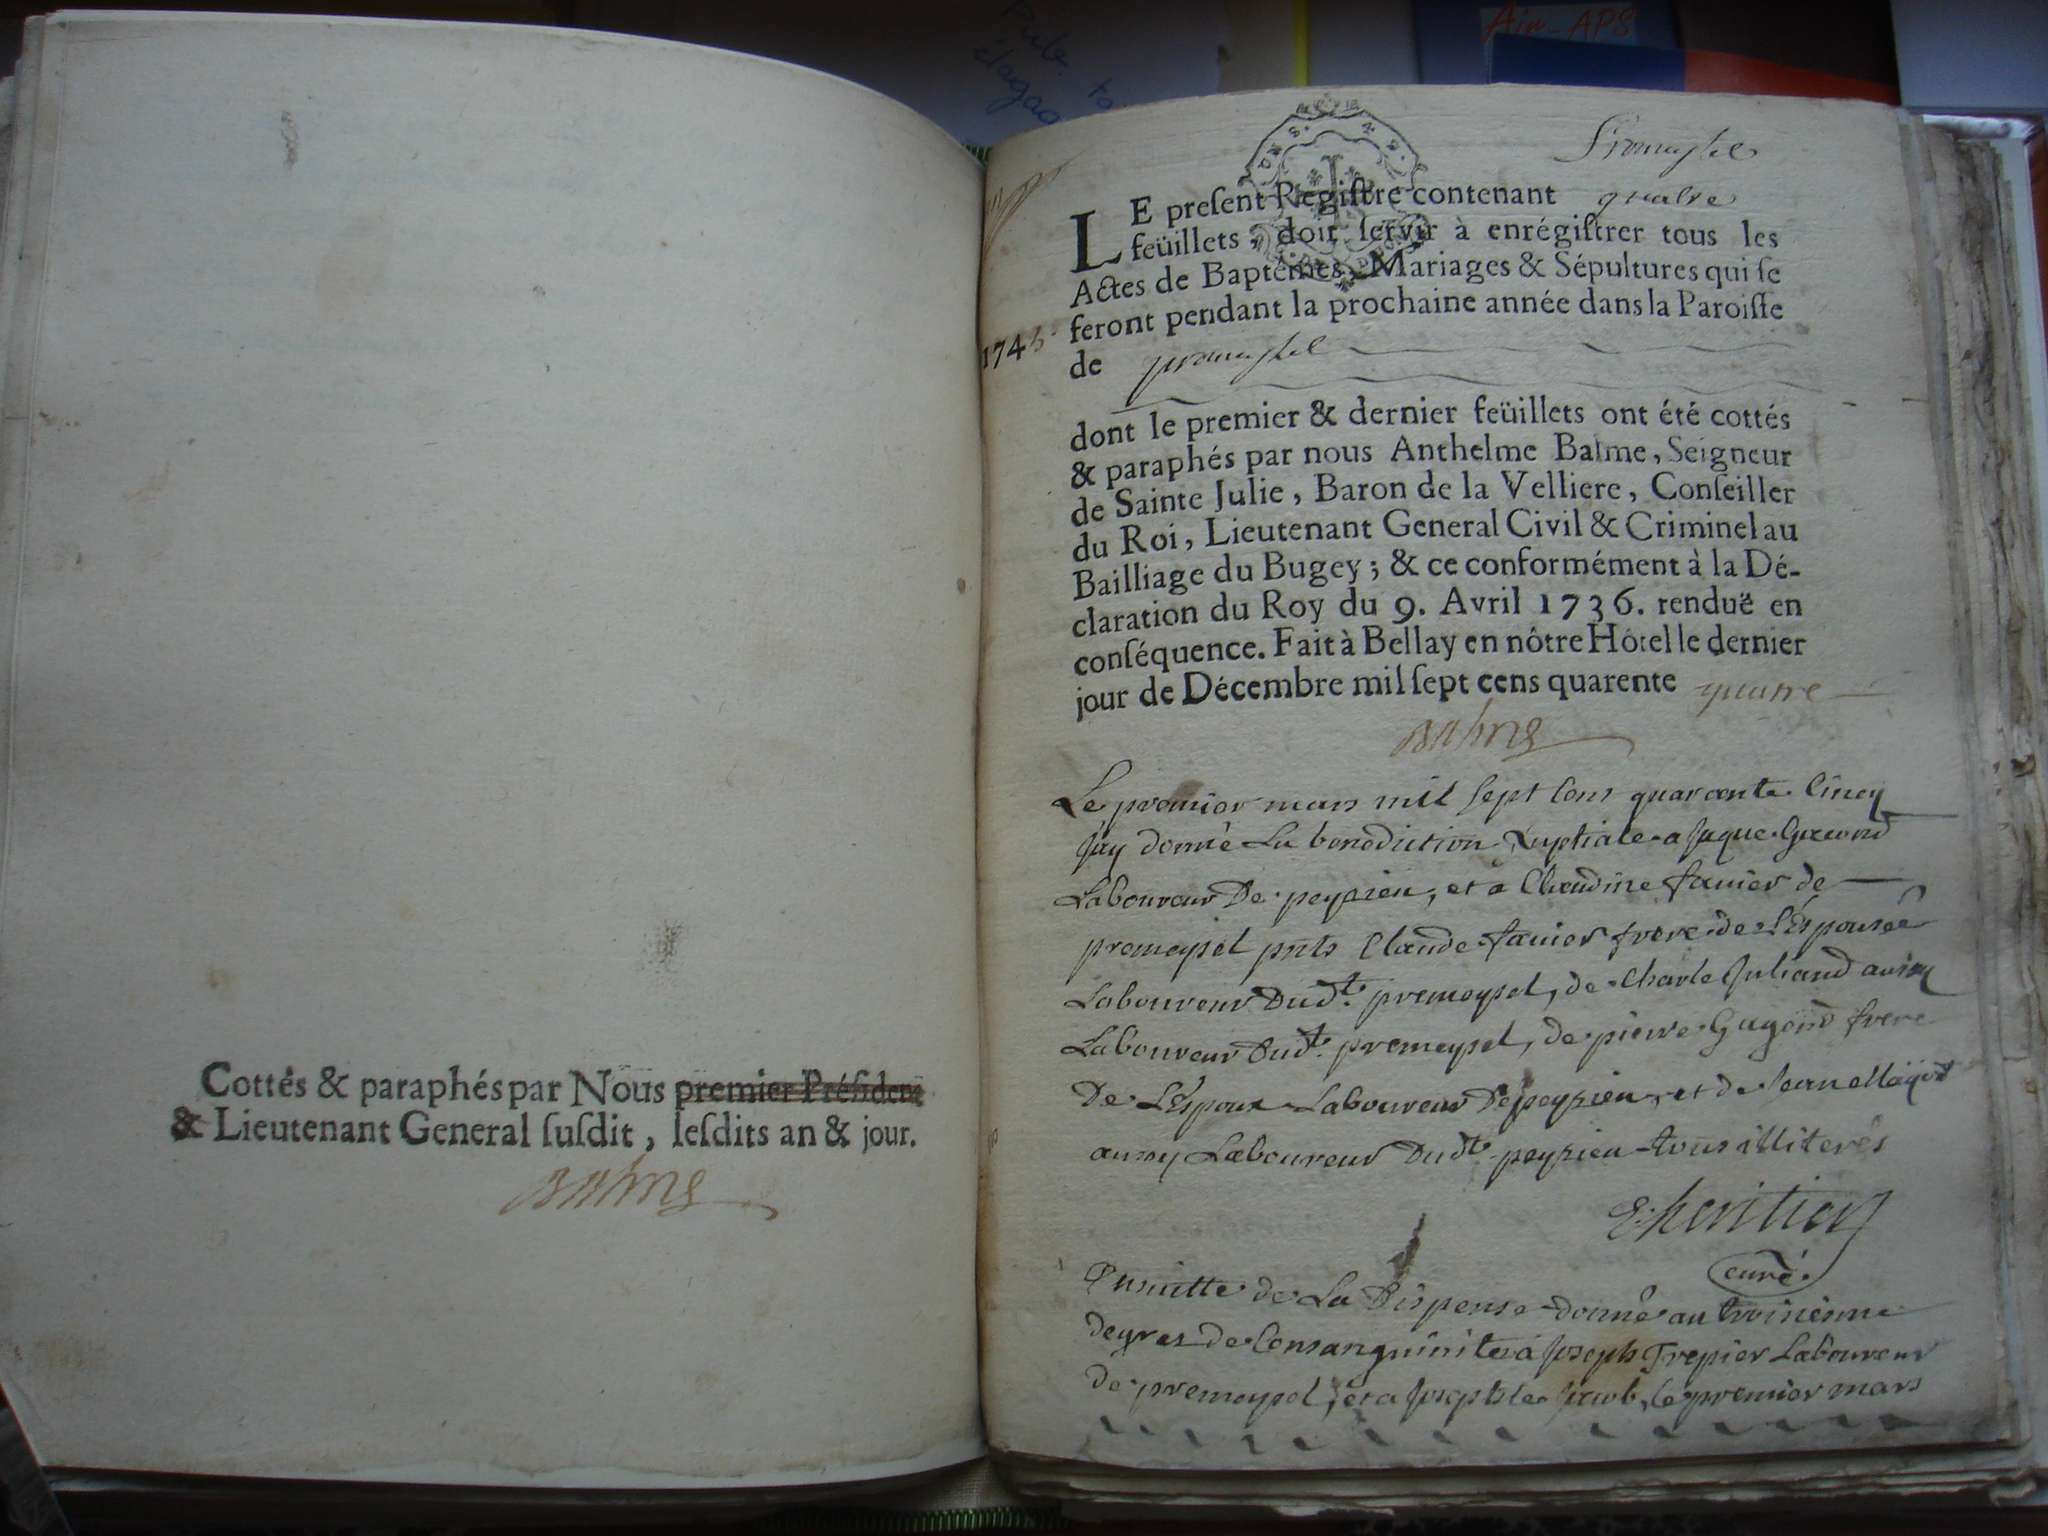 Pub.
Air-APS
Cottés & paraphés par Nous premier Président
& Lieutenant General ſuſdit, leſdits an & jour.
Balme
Promeysel
LE preſent Regiſtre contenant quatre
feüillets, doit ſervir à enrégiſtrer tous les
Actes de Baptêmes, Mariages & Sépultures qui ſe
feront pendant la prochaine année dans la Paroiſſe
1745
de promeysel
dont le premier & dernier feüillets ont été cottés
& paraphés par nous Anthelme Balme, Seigneur
de Sainte Julie, Baron de la Velliere, Conſeiller
du Roi, Lieutenant General Civil & Criminel au
Bailliage du Bugey; & ce conformément à la Dé-
claration du Roy du 9. Avril 1736. renduë en
conſéquence. Fait à Bellay en nôtre Hôtel le dernier
jour de Décembre mil ſept cens quarente quatre
Balme
Le premier mars mil sept cens quarante cincq
j'ay donné La benediction Nuptiale a Jaque
Laboureur De peyzieu, et a Claudine favier de
premeysel pnts Claude favier frere de L'Espousée
Laboureur Dudt. premeysel, de Charle Juliand aussy
Laboureur Dudt. premeysel, de pierre frere
De L'Espoux Laboureur De peyzieu, et de Jean
aussy Laboureur Dudt. peyzieu tous illiterés
E. heritier
curé.
de La Dispense donné au troisiesme
degres de Consanguinite a Joseph Trepier Laboureur
de premeysel, et a Josephte Jacob, le premier mars